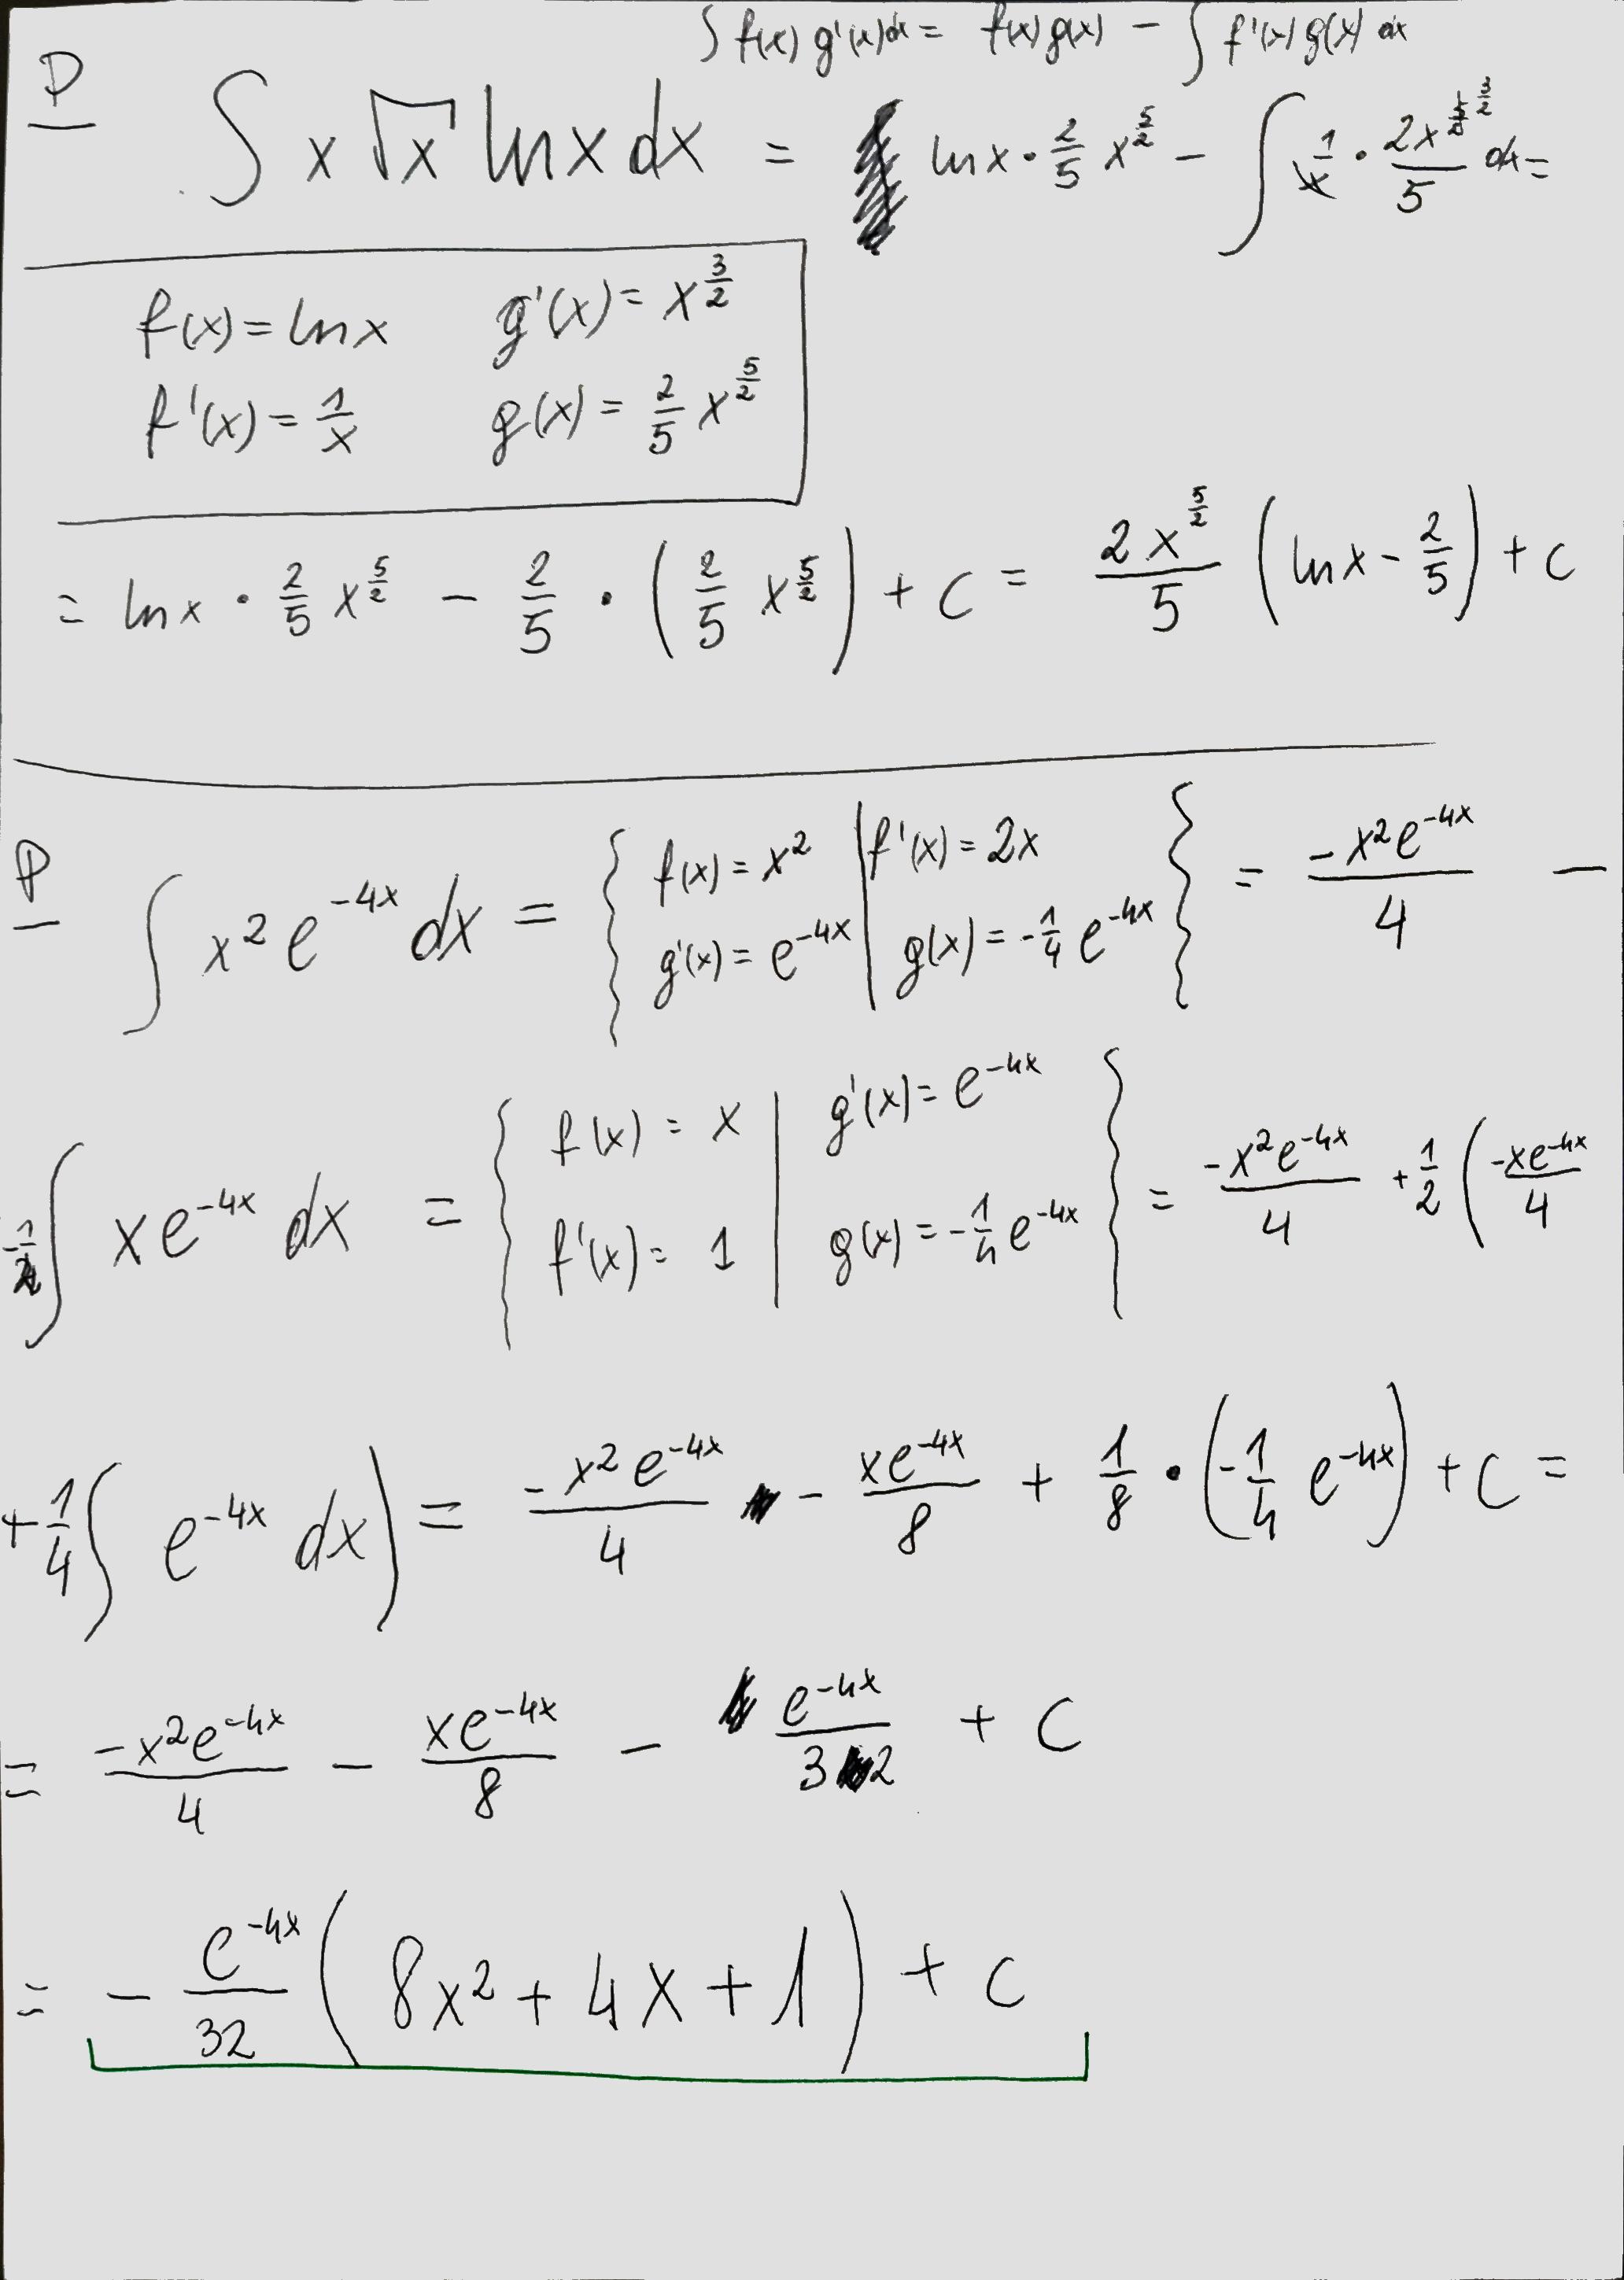 ∫ f(x) g'(x) dx = f(x) g(x) − ∫ f'(x) g(x) dx
P ∫ x √x ln x dx = ln x · 2/5 x^(5/2) − ∫ 1/x · 2x^(3/2)/5 dx =
f(x) = ln x g'(x) = x^(3/2)
f'(x) = 1/x g(x) = 2/5 x^(5/2)
= ln x · 2/5 x^(5/2) − 2/5 · (2/5 x^(5/2)) + C = 2x^(5/2)/5 (ln x − 2/5) + C
P ∫ x² e^(−4x) dx = { f(x) = x² | f'(x) = 2x
g'(x) = e^(−4x) | g(x) = −1/4 e^(−4x) } = −x² e^(−4x)/4 −
−1/2 ∫ x e^(−4x) dx = { f(x) = x | g'(x) = e^(−4x)
f'(x) = 1 | g(x) = −1/4 e^(−4x) } = −x² e^(−4x)/4 + 1/2 (−x e^(−4x)/4
+ 1/4 ∫ e^(−4x) dx) = −x² e^(−4x)/4 − x e^(−4x)/8 + 1/8 · (−1/4 e^(−4x)) + C =
= −x² e^(−4x)/4 − x e^(−4x)/8 − e^(−4x)/32 + C
= − e^(−4x)/32 (8x² + 4x + 1) + C